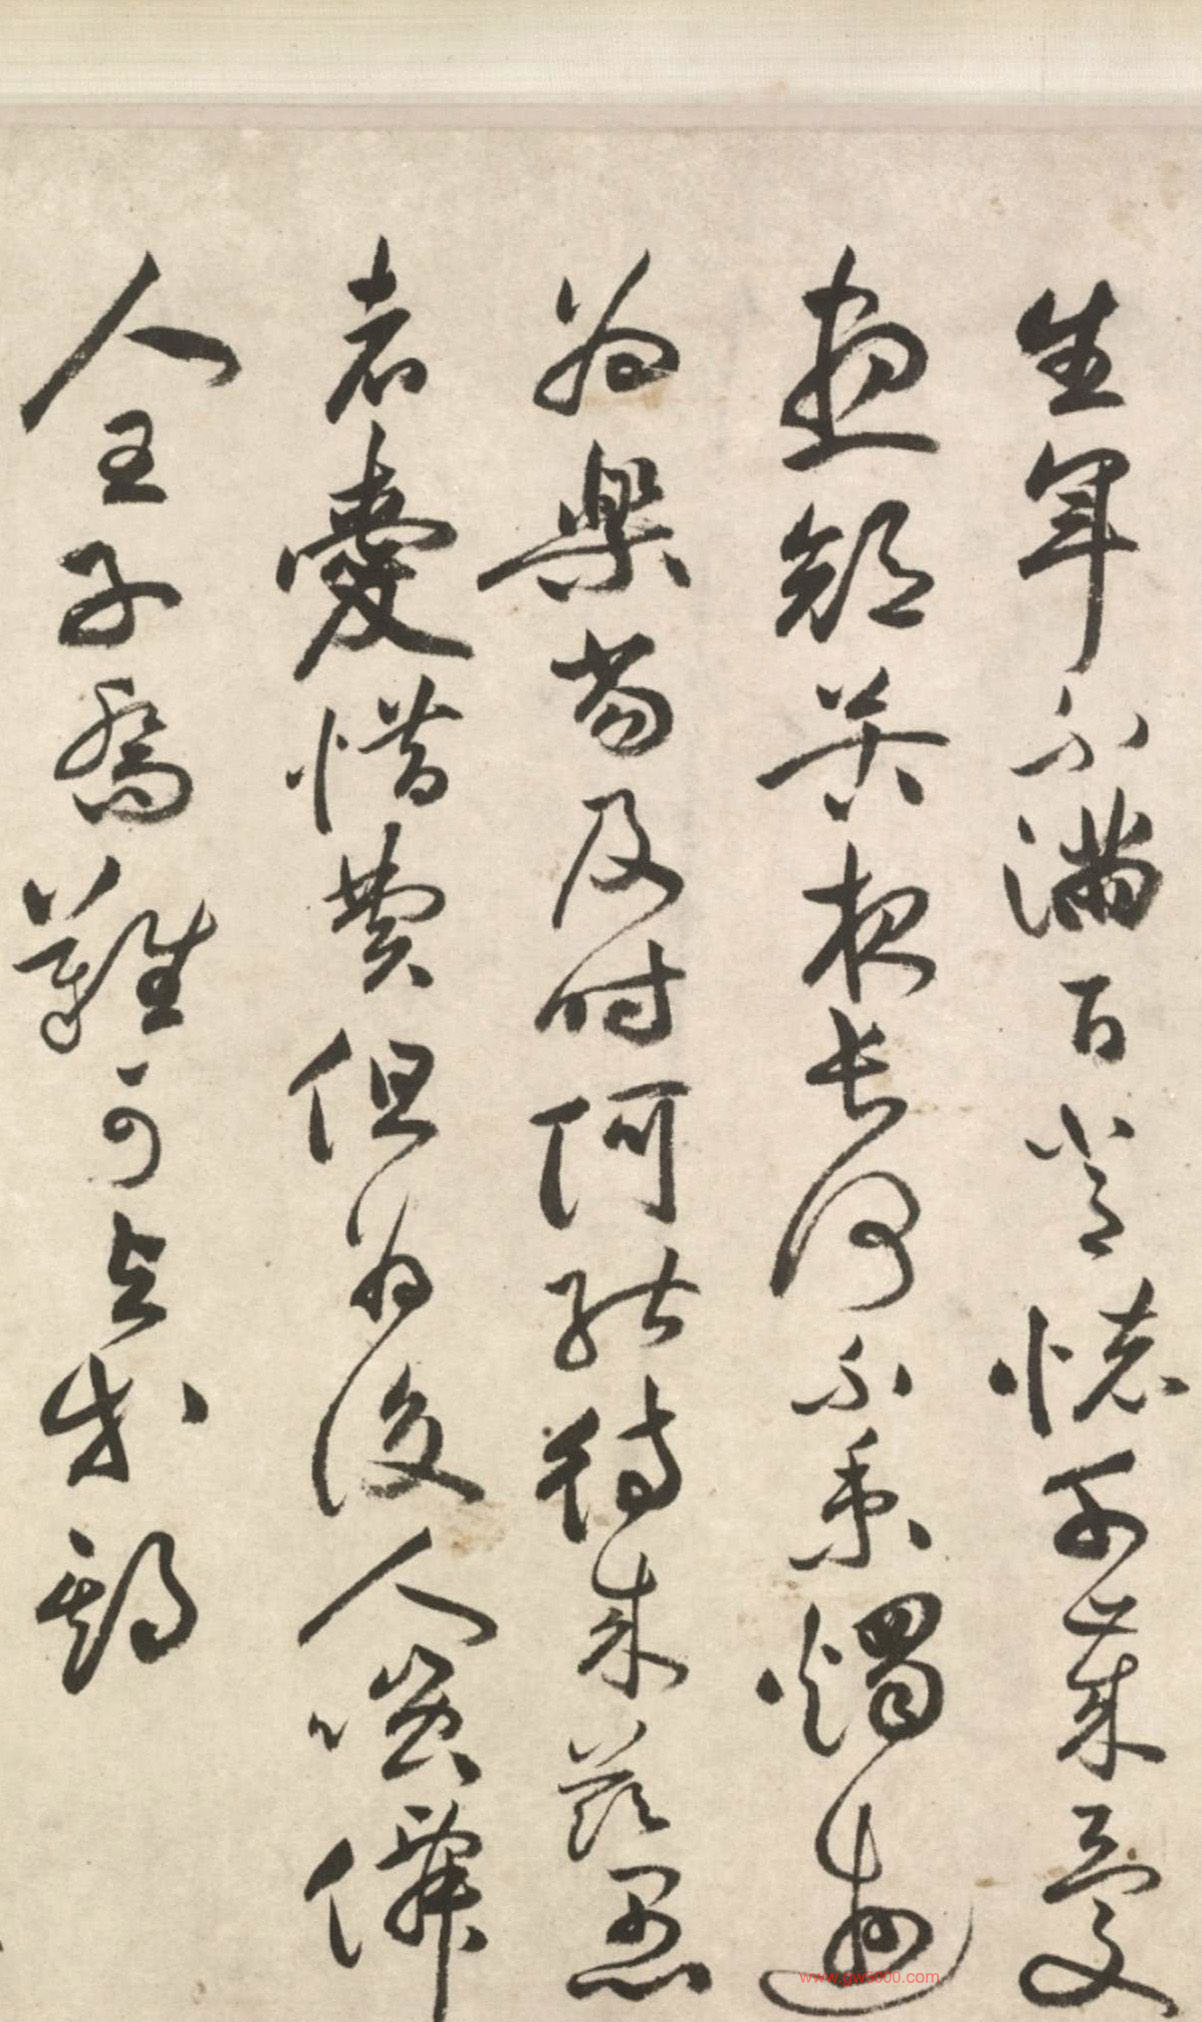 生年不滿百常懷千歲憂
晝短苦夜長何不秉燭遊
為樂當及時何能待來茲愚
者愛惜費但為後人嗤僊
人王子喬難可與等期